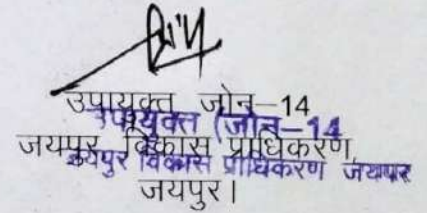 उपायुक्त जोन-14
उपायुक्त (जोन-14
जयपुर विकास प्राधिकरण,
जयपुर विकास प्राधिकरण जयपुर
जयपुर।